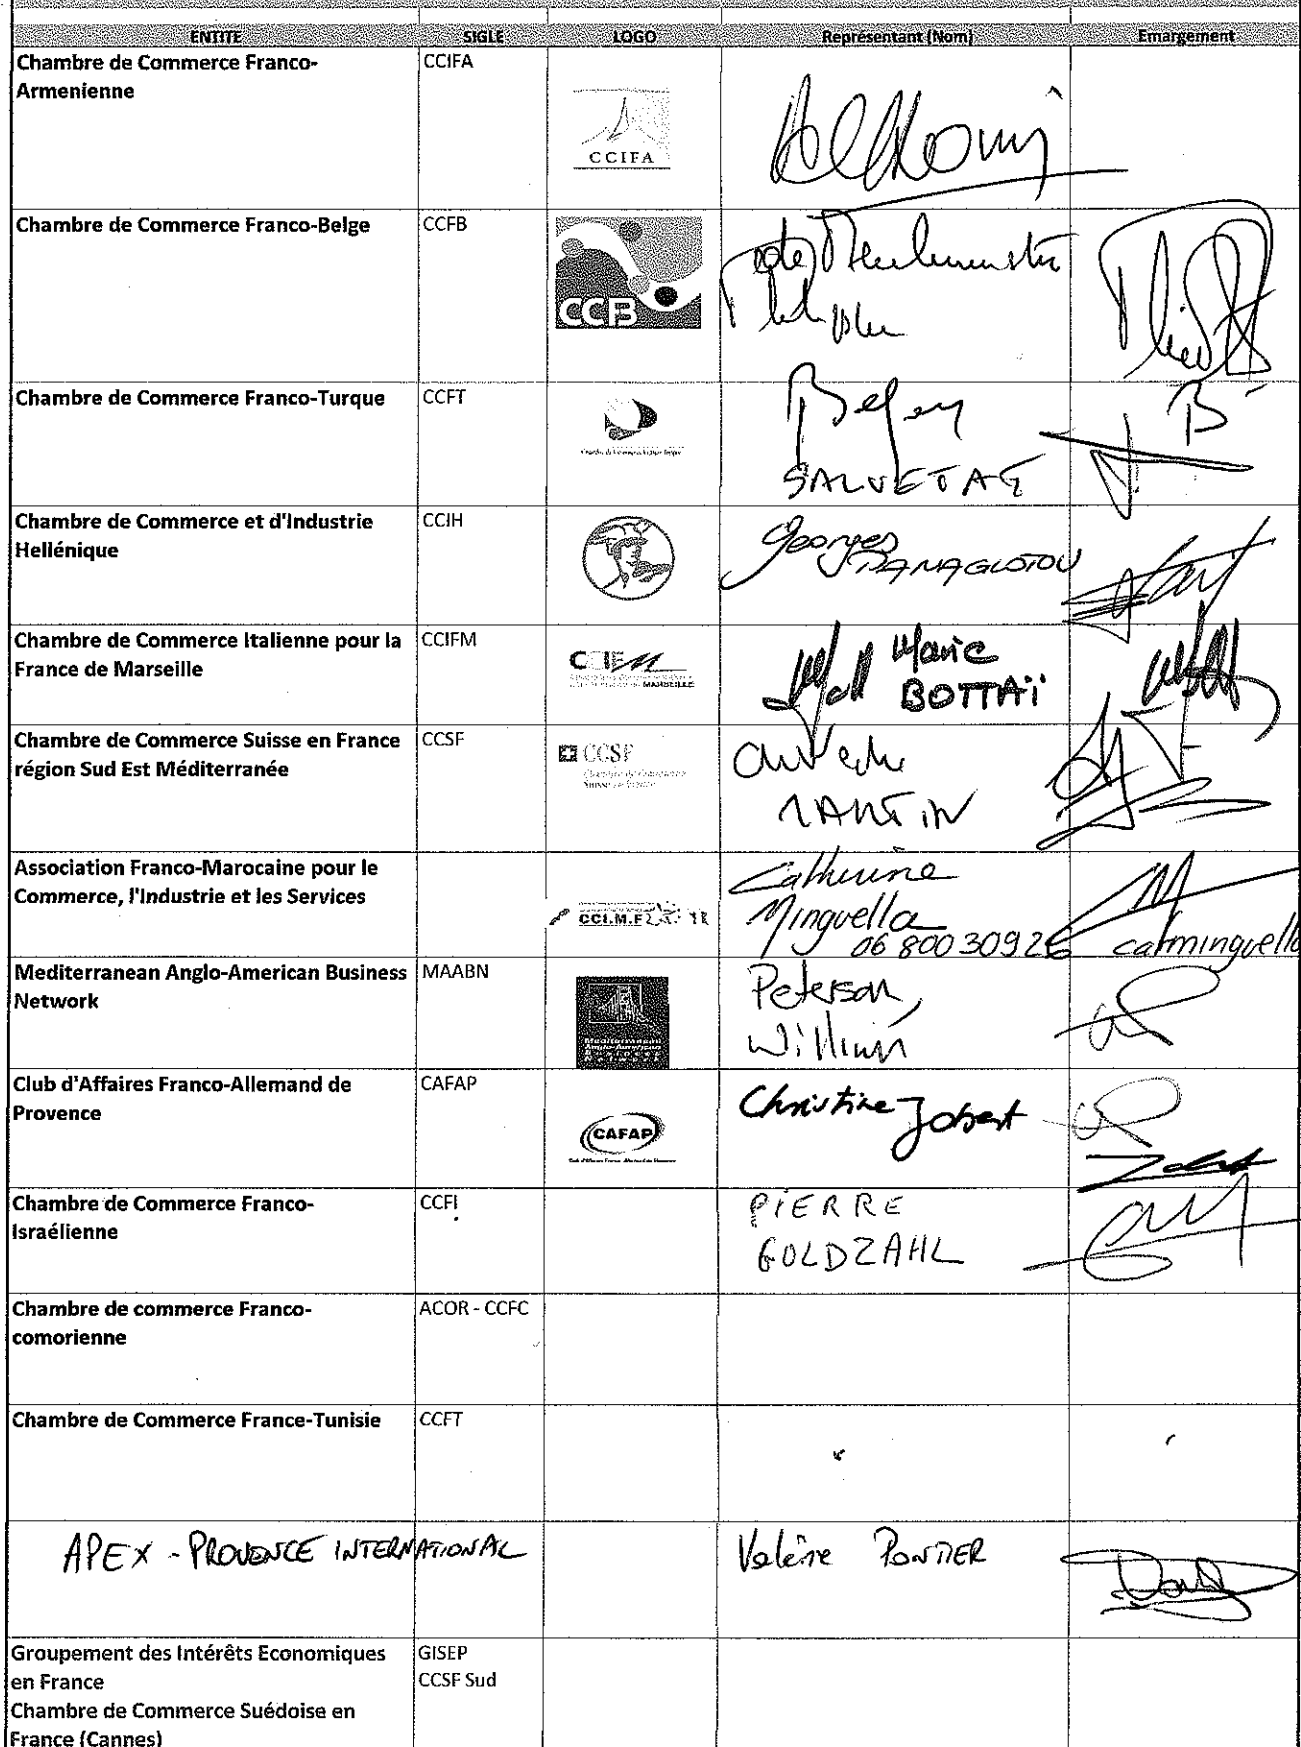 ENTITE SIGLE LOGO Représentant (Nom) Emargement
Chambre de Commerce Franco- CCIFA
Armenienne
CCIFA
Chambre de Commerce Franco-Belge CCFB
CCFB
Philippe
Chambre de Commerce Franco-Turque CCFT
SALVETAT
Chambre de Commerce et d'Industrie CCIH
Hellénique
Georges
PANAGIOTOU
Chambre de Commerce Italienne pour la CCIFM
France de Marseille
MARSEILLE
Marie
BOTTAï
Chambre de Commerce Suisse en France CCSF
région Sud Est Méditerranée
CCSF
Chambre de Commerce
Suisse en France
MARTIN
Association Franco-Marocaine pour le
Commerce, l'Industrie et les Services
CCI.M.F
Catherine
Minguella
06 800 309 26 catminguella
Mediterranean Anglo-American Business MAABN
Network
Mediterranean
Anglo-American
Peterson,
William
Club d'Affaires Franco-Allemand de CAFAP
Provence
CAFAP
Christine Jobert
Chambre de Commerce Franco- CCFI
Israélienne
PIERRE
GOLDZAHL
Chambre de commerce Franco- ACOR - CCFC
comorienne
Chambre de Commerce France-Tunisie CCFT
APEX - PROVENCE INTERNATIONAL Valérie PONTIER
Groupement des Intérêts Economiques GISEP
en France CCSF Sud
Chambre de Commerce Suédoise en
France (Cannes)